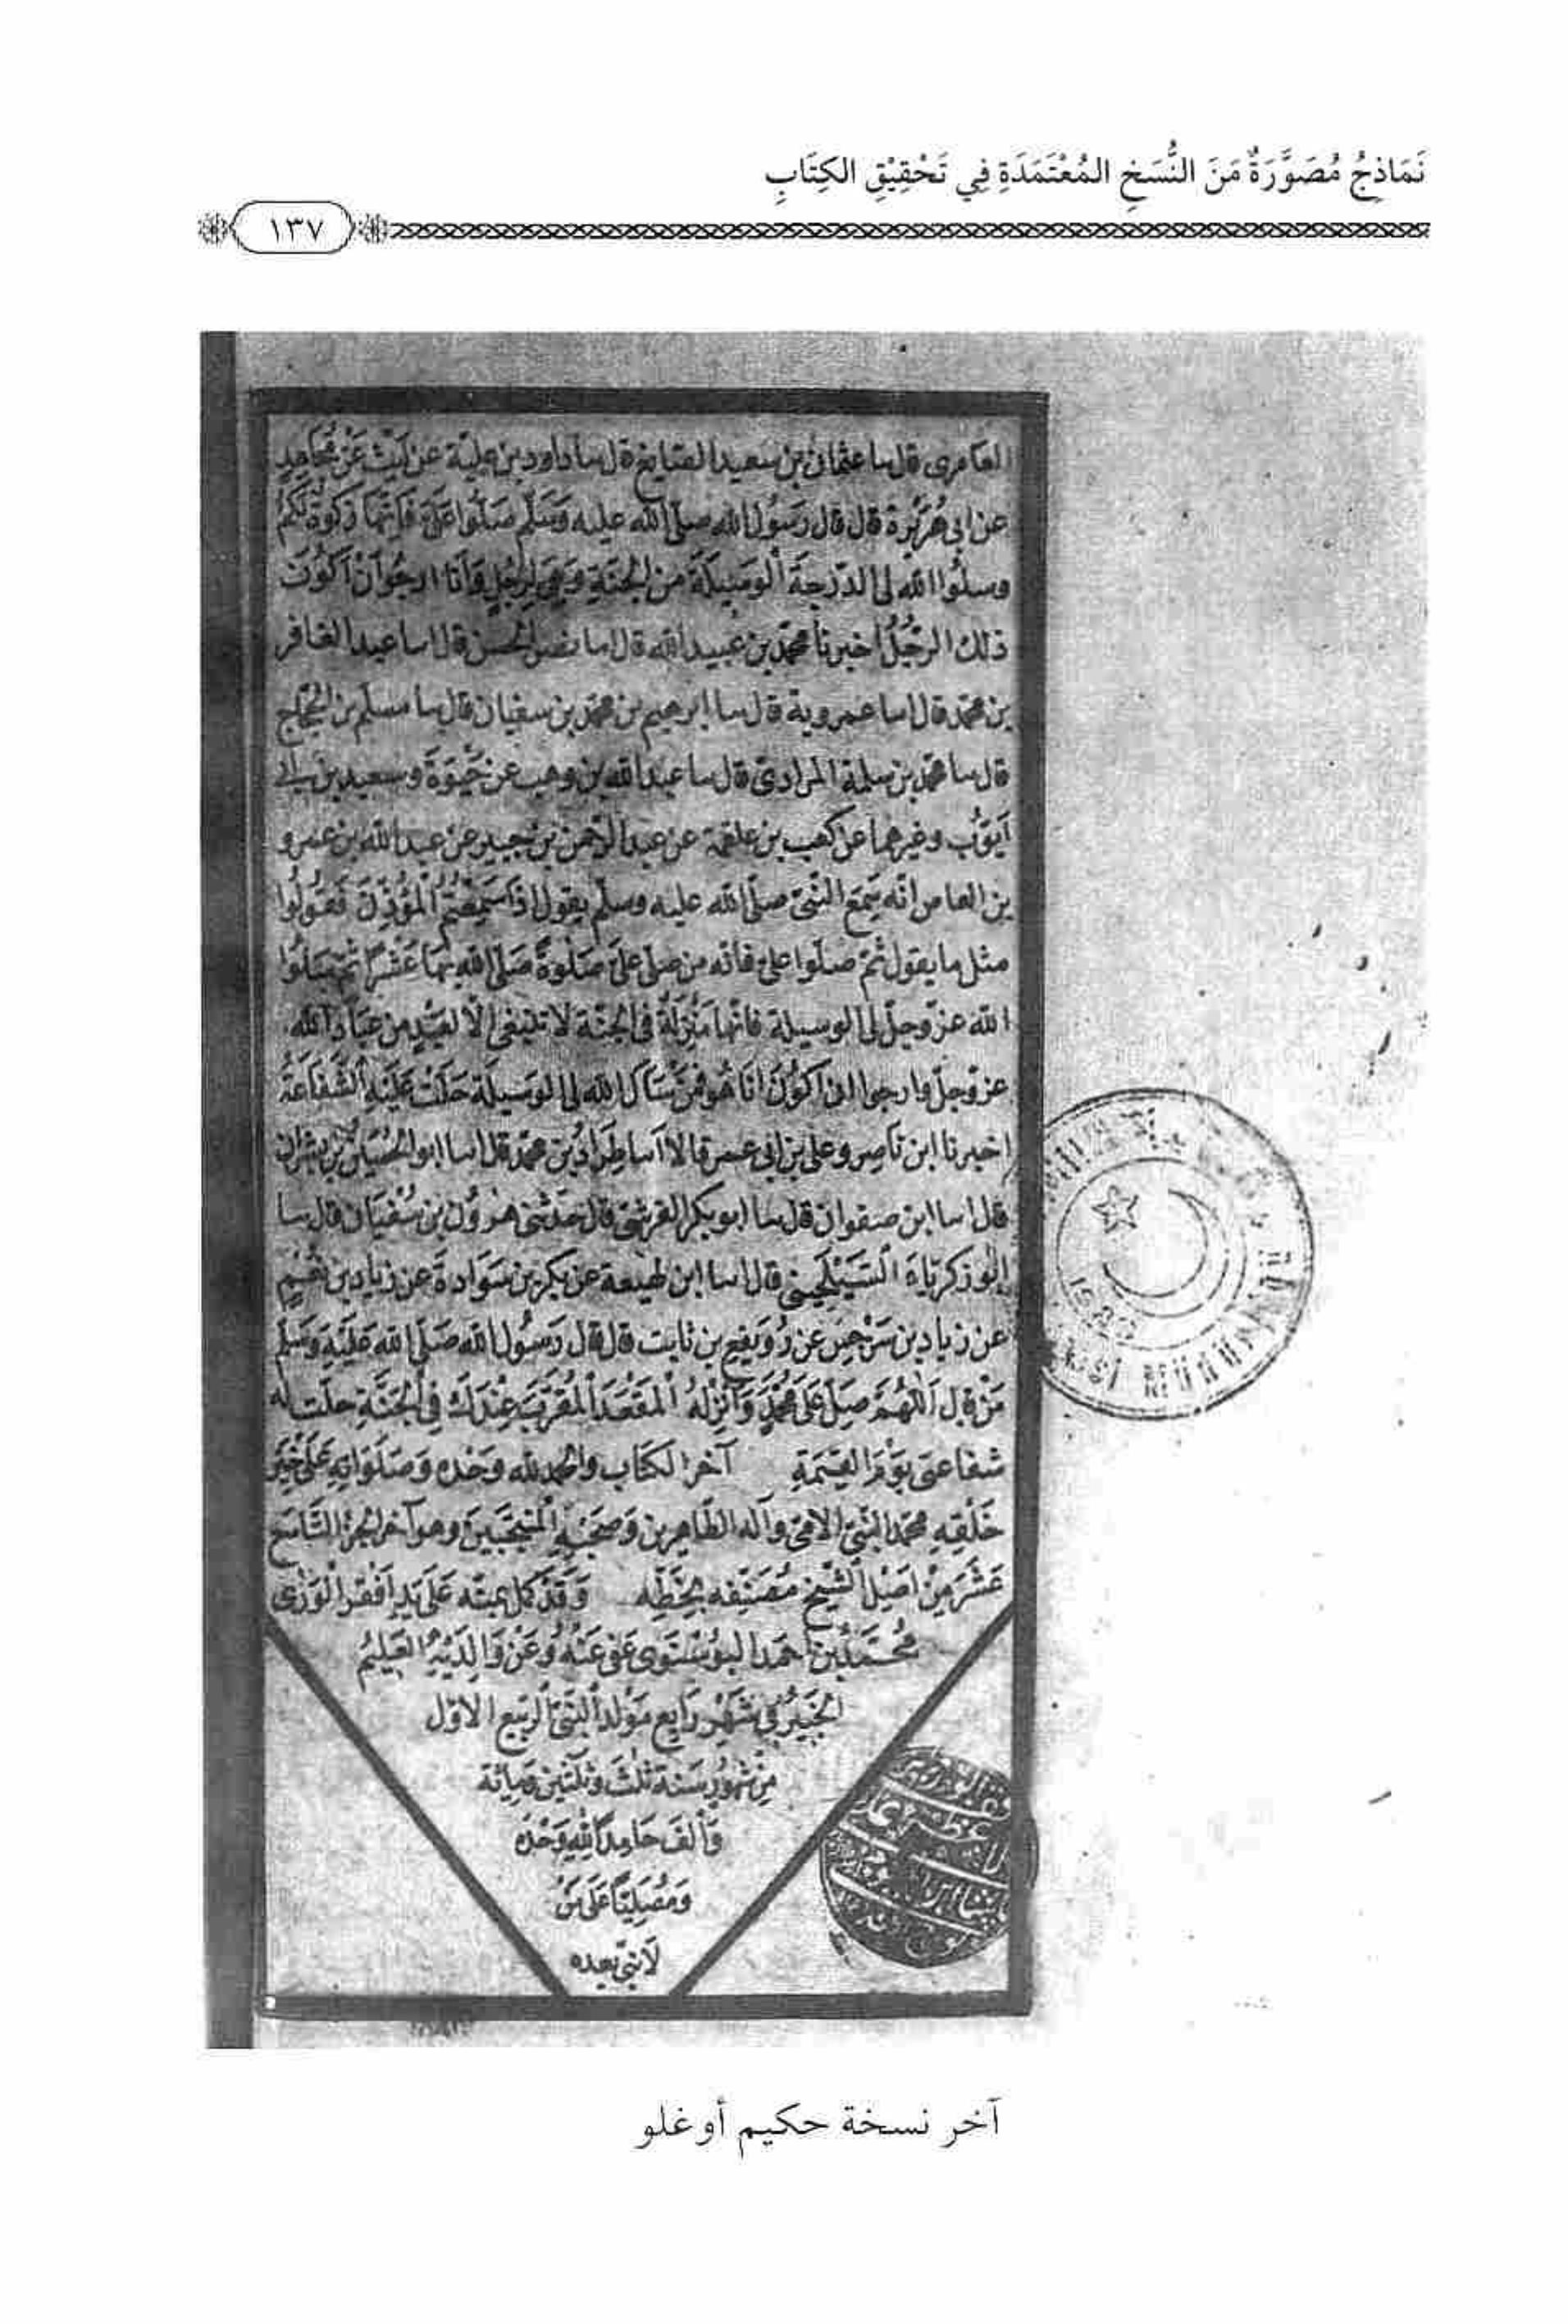 نَمَاذِجُ مُصَوَّرَةٌ مَنَ النُّسَخِ المُعْتَمَدَةِ فِي تَحْقِيْقِ الكِتَابِ
١٣٧
العامرى قال سا عثمان بن سعيد الصايغ قال سا داود بن علية عن ليث عن مجاهد
عن ابى هريرة قال قال رسول الله صلى الله عليه وسلم صلوا على فانها زكوة لكم
وسلوا الله لى الدرجة الوسيلة من الجنة وهى لرجل وانا ارجو ان اكون
ذلك الرجل اخبرنا محمد بن عبيد الله قال سا نصر الحسن قال اسا عبد الغافر
بن محمد قال اسا عمروية قال سا ابرهيم بن محمد بن سفيان قال سا مسلم بن الحجاج
قال سا محمد بن سلمة المرادى قال سا عبد الله بن وهب عن حيوة وسعيد بن ابى
ايوب وغيرهما عن كعب بن علقمة عن عبد الرحمن بن جبير عن عبد الله بن عمرو
بن العاص انه سمع النبى صلى الله عليه وسلم يقول اذا سمعتم المؤذن فقولوا
مثل ما يقول ثم صلوا على فانه من صلى على صلوة صلى الله بها عشرا ثم سلوا
الله عز وجل لى الوسيلة فانها منزلة فى الجنة لا تنبغى الا لعبد من عباد الله
عز وجل وارجوا ان اكون انا هو فمن سأل الله لى الوسيلة حلت عليه الشفاعة
اخبرنا ابن ناصر وعلى بن ابى عمر قالا اسا طراد بن محمد قال اسا ابو الحسين بن بشران
قال اسا ابن صفوان قال سا ابو بكر القرشى قال حدثنى هرون بن سفيان قال سا
ابو زكرياء السيلحينى قال اسا ابن لهيعة عن بكر بن سوادة عن زياد بن نعيم
عن زياد بن سرجس عن رويفع بن ثابت قال قال رسول الله صلى الله عليه وسلم
من قال اللهم صل على محمد وانزله المقعد المقرب عندك فى الجنة حلت له
شفاعتى يوم القيمة آخر الكتاب والحمد لله وحده وصلواته على خير
خلقه محمد النبى الامى وآله الطاهرين وصحبه المنتجبين وهو آخر الجزء التاسع
عشر من اصل الشيخ مصنفه بخطه وقد كمل بمنه على يد افقر الورى
محمد بن احمد البوسنوى عفى عنه وعن والديه العليم
الخبير فى شهر رابع مولد النبى الربيع الاول
من شهور سنة ثلث وثلثين ومائة
والف حامدا لله وحده
ومصليا على من
لا نبى بعده
آخر نسخة حكيم أوغلو